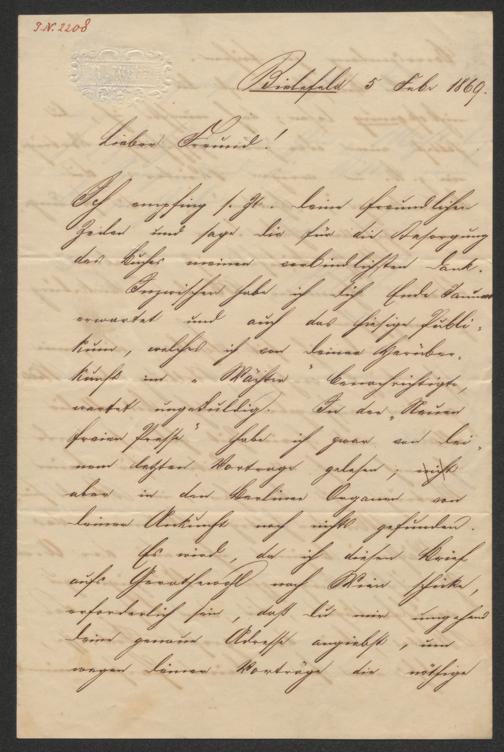 I.N. 2208
Bielefeld 5 Febr 1869.
Lieber Freund!
Ich empfing s. Zt. deine freundlichen
Zeilen und sage dir für die Besorgung
des meinen verbindlichsten Dank.
Inzwischen habe ich dich Ende Januar
erwartet und auch das hiesige Publi-
kum, welches ich von deiner Herüber-
kunft im „Wächter" benachrichtigte,
wartet ungeduldig. In der „Neuen
freien Presse" habe ich zwar von dei-
nem letzten Vortrage gelesen; nicht
aber in den Berliner Organen von
deiner Ankunft noch nichts gefunden.
Es wird, da ich diesen Brief
aufs Gerathewohl nach Wien schicke,
erforderlich sein, daß du mir umgehend
deine genaue Adresse angiebst, um
wegen deiner Vorträge die nöthige